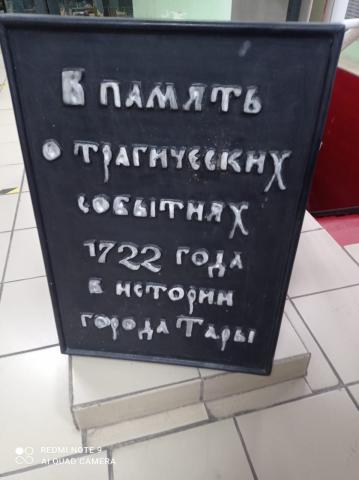 В ПАМЯТЬ
О ТРАГИЧЕСКИХ
СОБЫТИЯХ
1722 ГОДА
В ИСТОРИИ
ГОРОДА ТАРЫ
REDMI NOTE 9
AI QUAD CAMERA